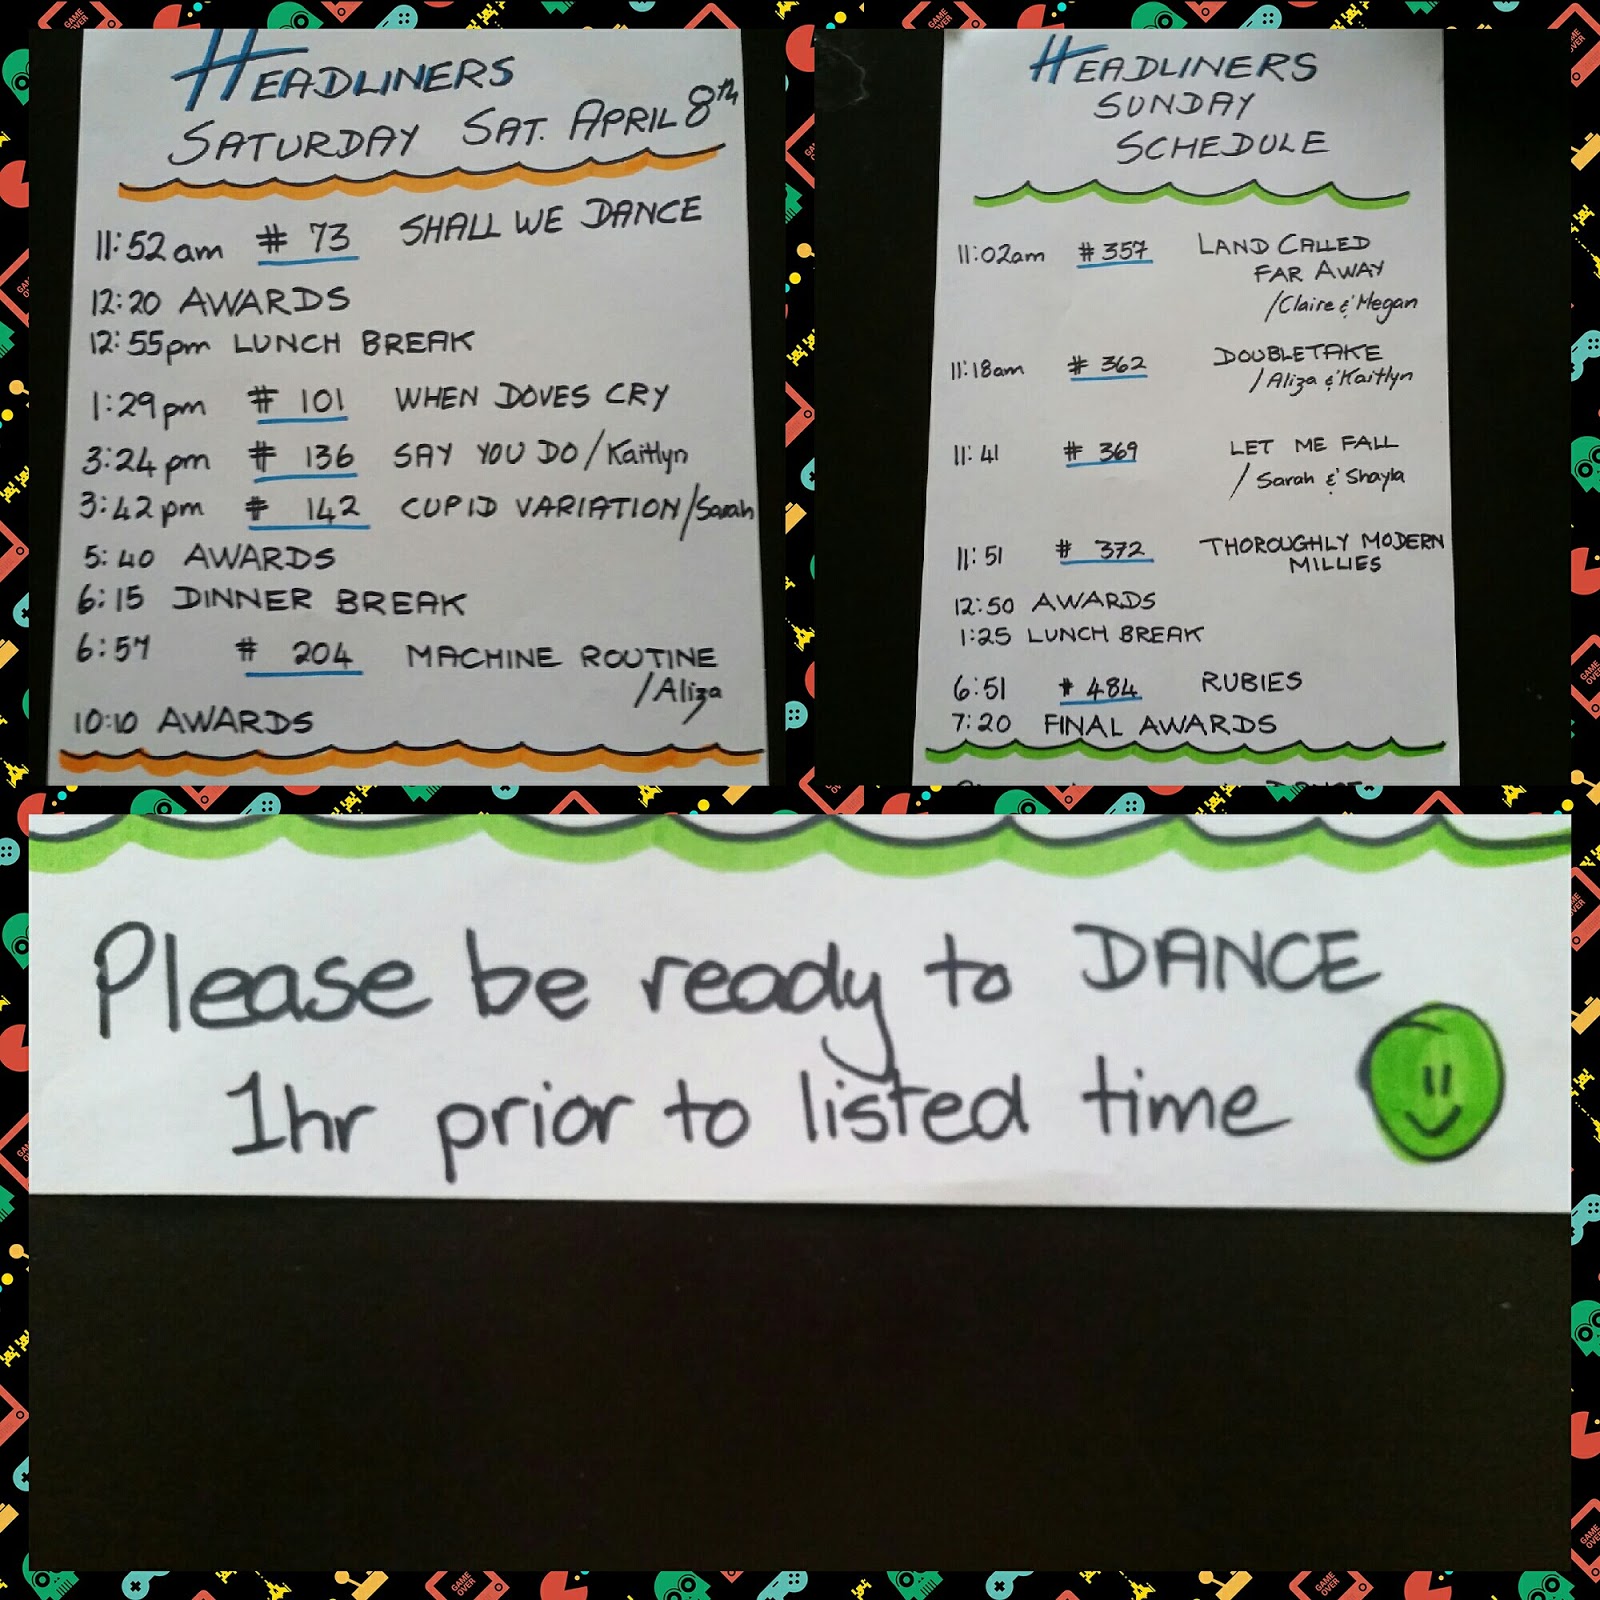 HEADLINERS
SATURDAY SAT. APRIL 8th
11:52am # 73 SHALL WE DANCE
12:20 AWARDS
12:55pm LUNCH BREAK
1:29pm # 101 WHEN DOVES CRY
3:24pm # 136 SAY YOU DO/Kaitlyn
3:42pm # 142 CUPID VARIATION/Sarah
5:40 AWARDS
6:15 DINNER BREAK
6:57 # 204 MACHINE ROUTINE
/Aliza
10:10 AWARDS
HEADLINERS
SUNDAY
SCHEDULE
11:02am # 357 LAND CALLED
FAR AWAY
/Claire & Megan
11:18am # 362 DOUBLETAKE
/Aliza & Kaitlyn
11:41 # 369 LET ME FALL
/ Sarah & Shayla
11:51 # 372 THOROUGHLY MODERN
MILLIES
12:50 AWARDS
1:25 LUNCH BREAK
6:51 # 484 RUBIES
7:20 FINAL AWARDS
Please be ready to DANCE
1hr prior to listed time
GAME OVER